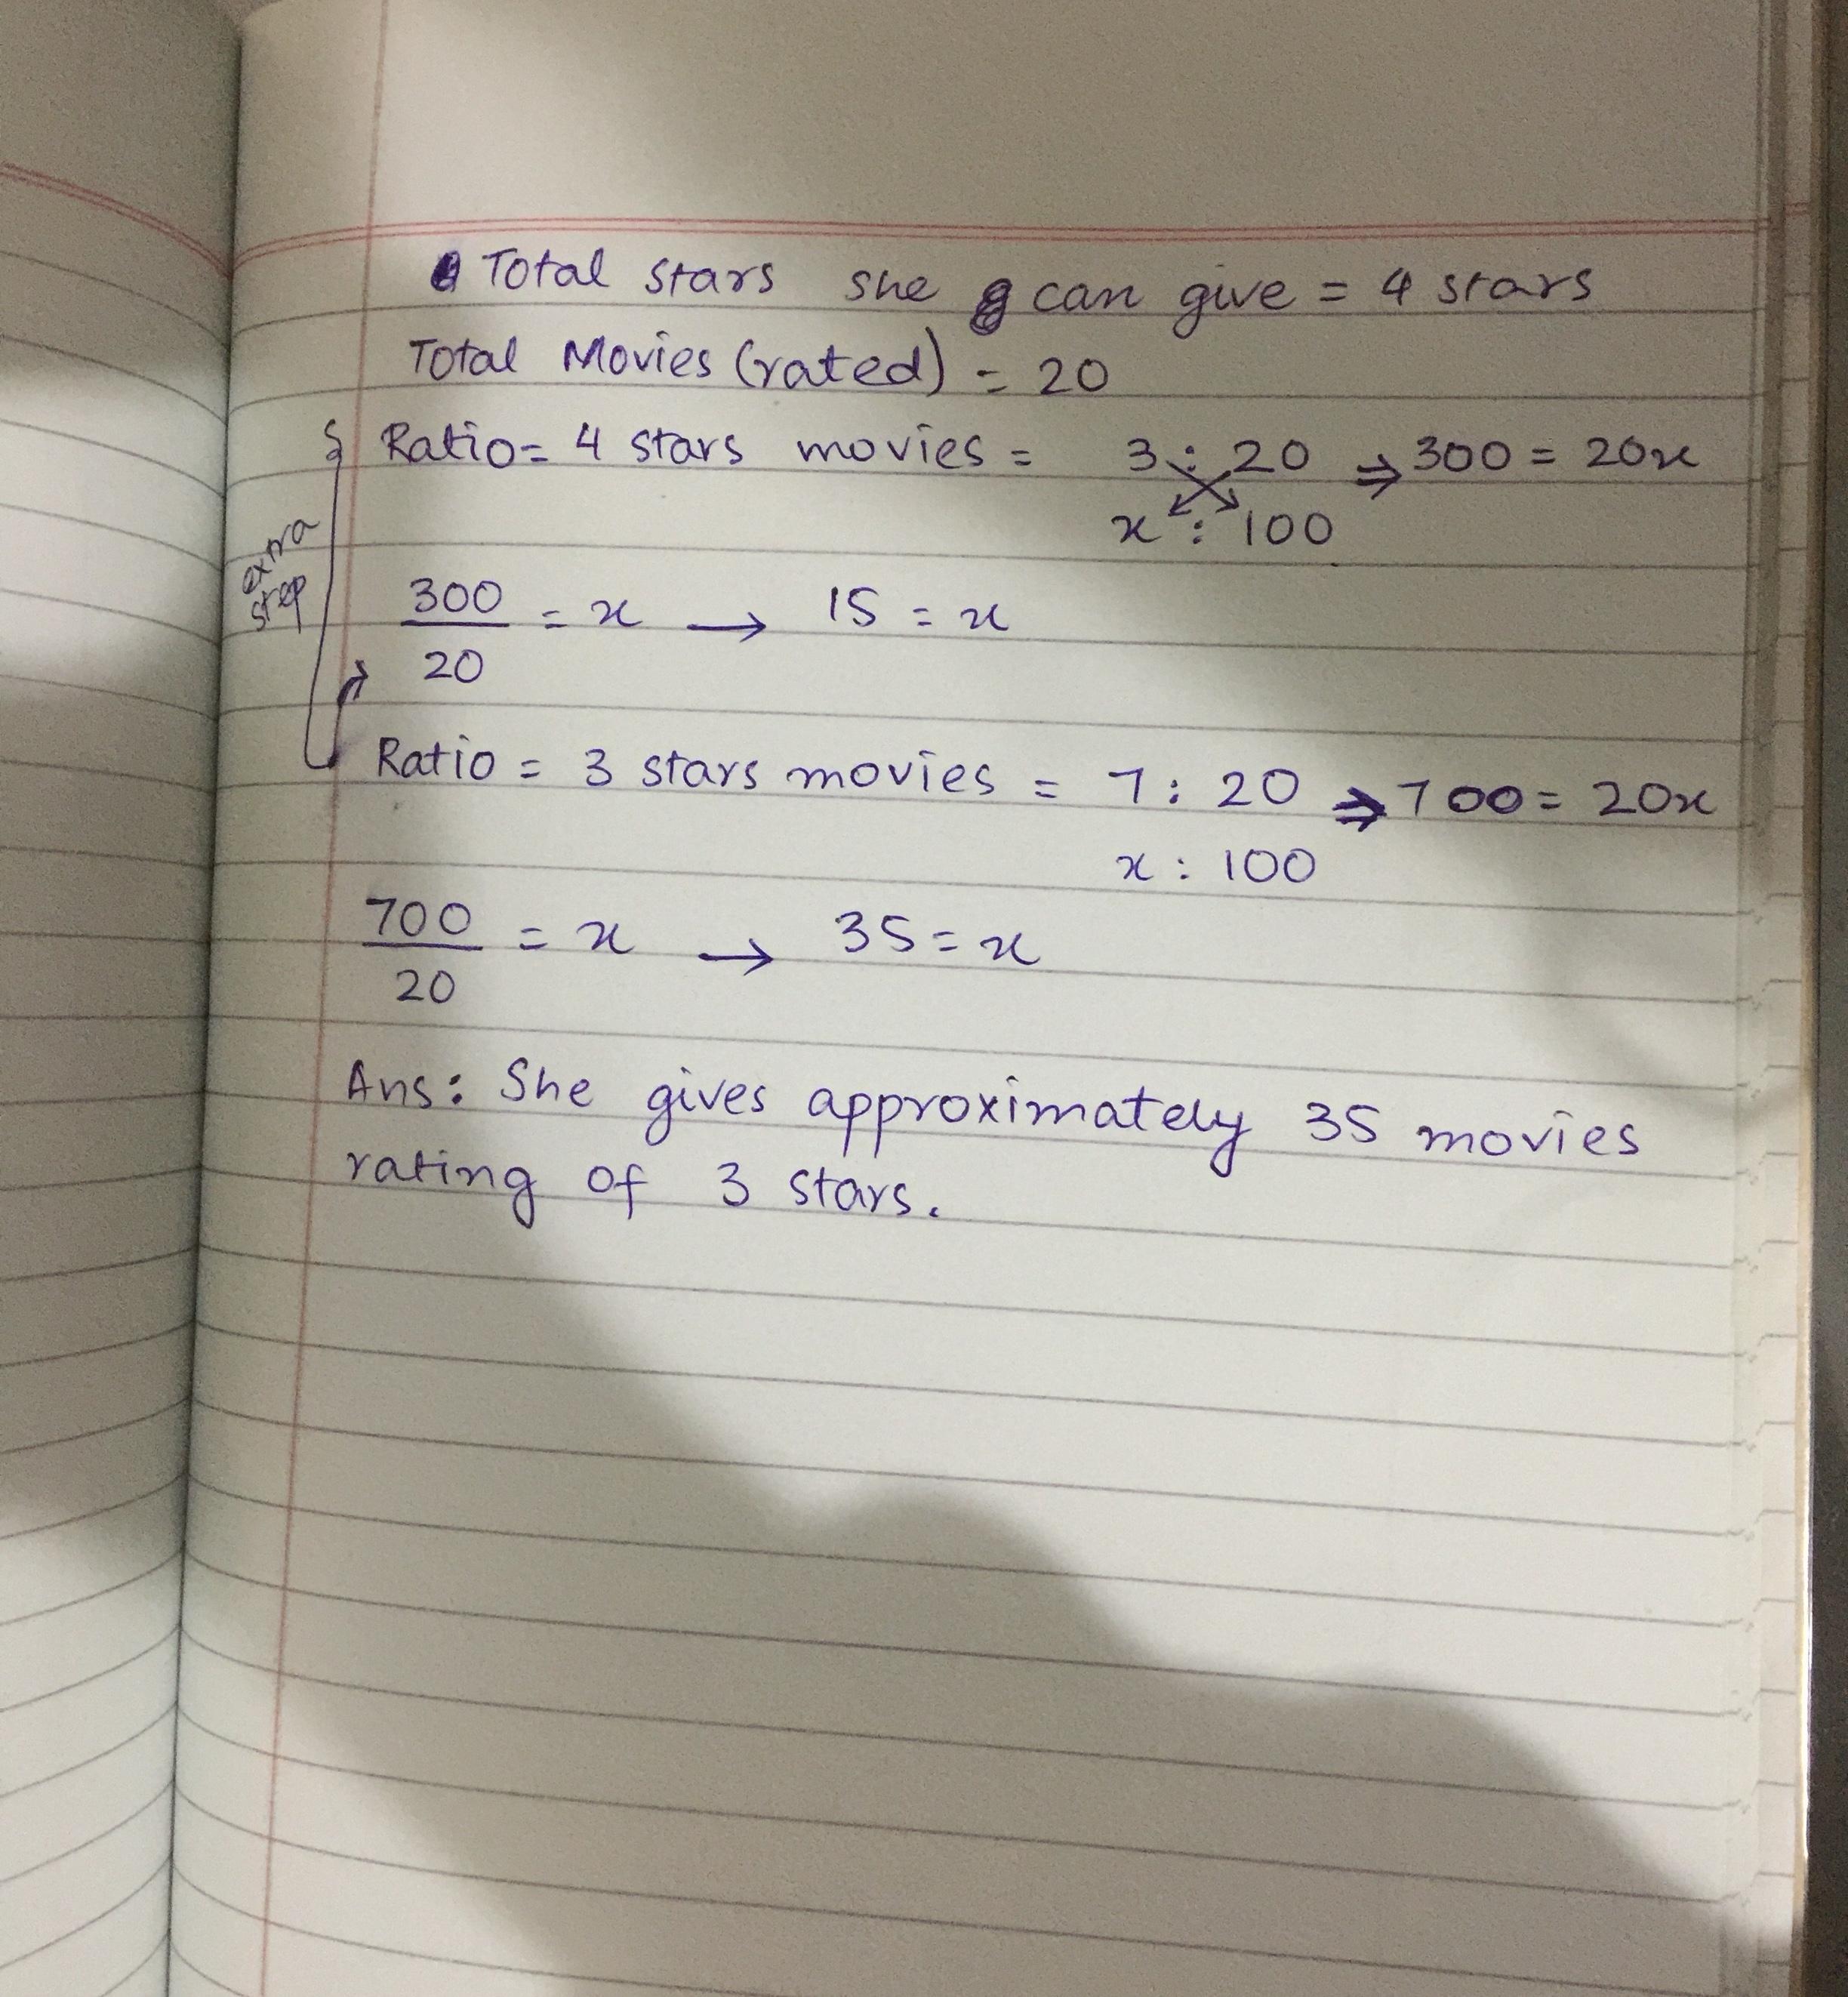 Total stars she can give = 4 stars
Total Movies (rated) = 20
Ratio = 4 stars movies = 3 : 20 ⇒ 300 = 20x
x : 100
extra
step
300/20 = x → 15 = x
Ratio = 3 stars movies = 7 : 20 ⇒ 700 = 20x
x : 100
700/20 = x → 35 = x
Ans: She gives approximately 35 movies
rating of 3 stars.